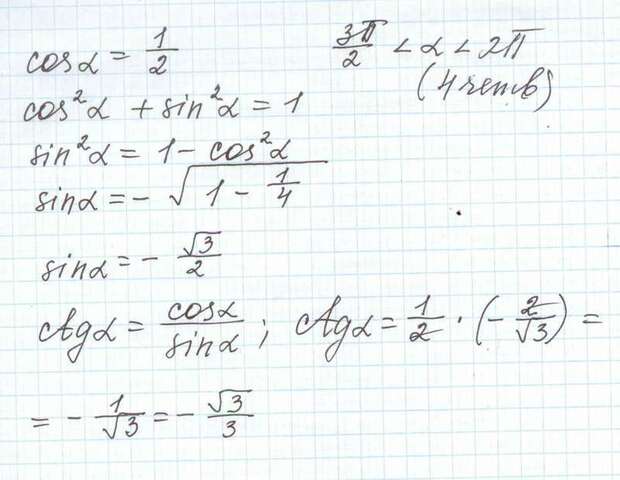 cosα = 1/2 3π/2 < α < 2π
(4 четв)
cos²α + sin²α = 1
sin²α = 1 - cos²α
sinα = - √(1 - 1/4)
sinα = - √3/2
ctgα = cosα/sinα; ctgα = 1/2 · (- 2/√3) =
= - 1/√3 = - √3/3